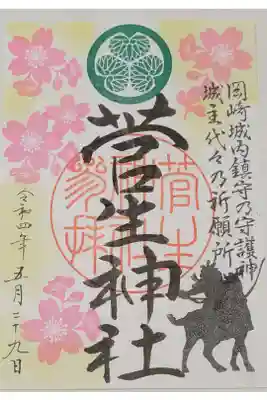 岡崎城内鎮守乃守護神
城主代々乃祈願所
菅生神社
菅生
参拝
令和四年五月二十九日